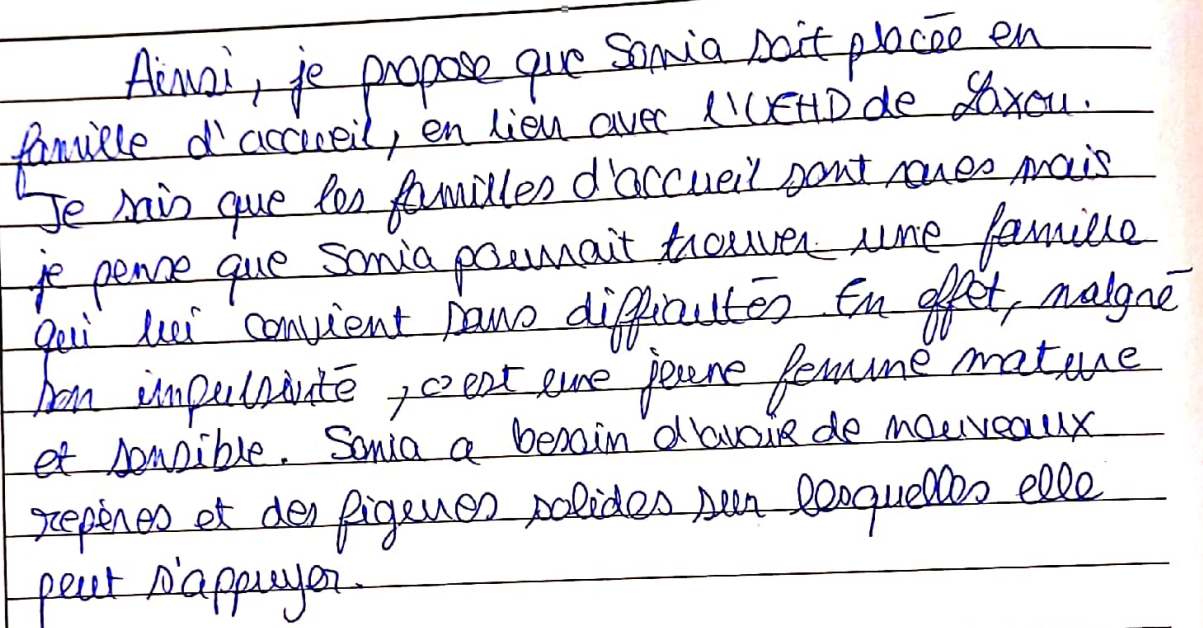 Ainsi, je propose que Sonia soit placée en
famille d'accueil, en lien avec l'UEHD de Laxou.
Je sais que les familles d'accueil sont rares mais
je pense que Sonia pourrait trouver une famille
qui lui convient sans difficultés. En effet, malgré
son impulsivité, c'est une jeune femme mature
et sensible. Sonia a besoin d'avoir de nouveaux
repères et des figures solides sur lesquelles elle
peut s'appuyer.